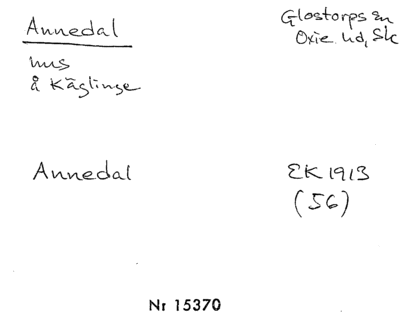 Annedal
Glostorps sn
Oxie hd, Sk
hus
å Käglinge
Annedal
EK 1913
(56)
Nr 15370